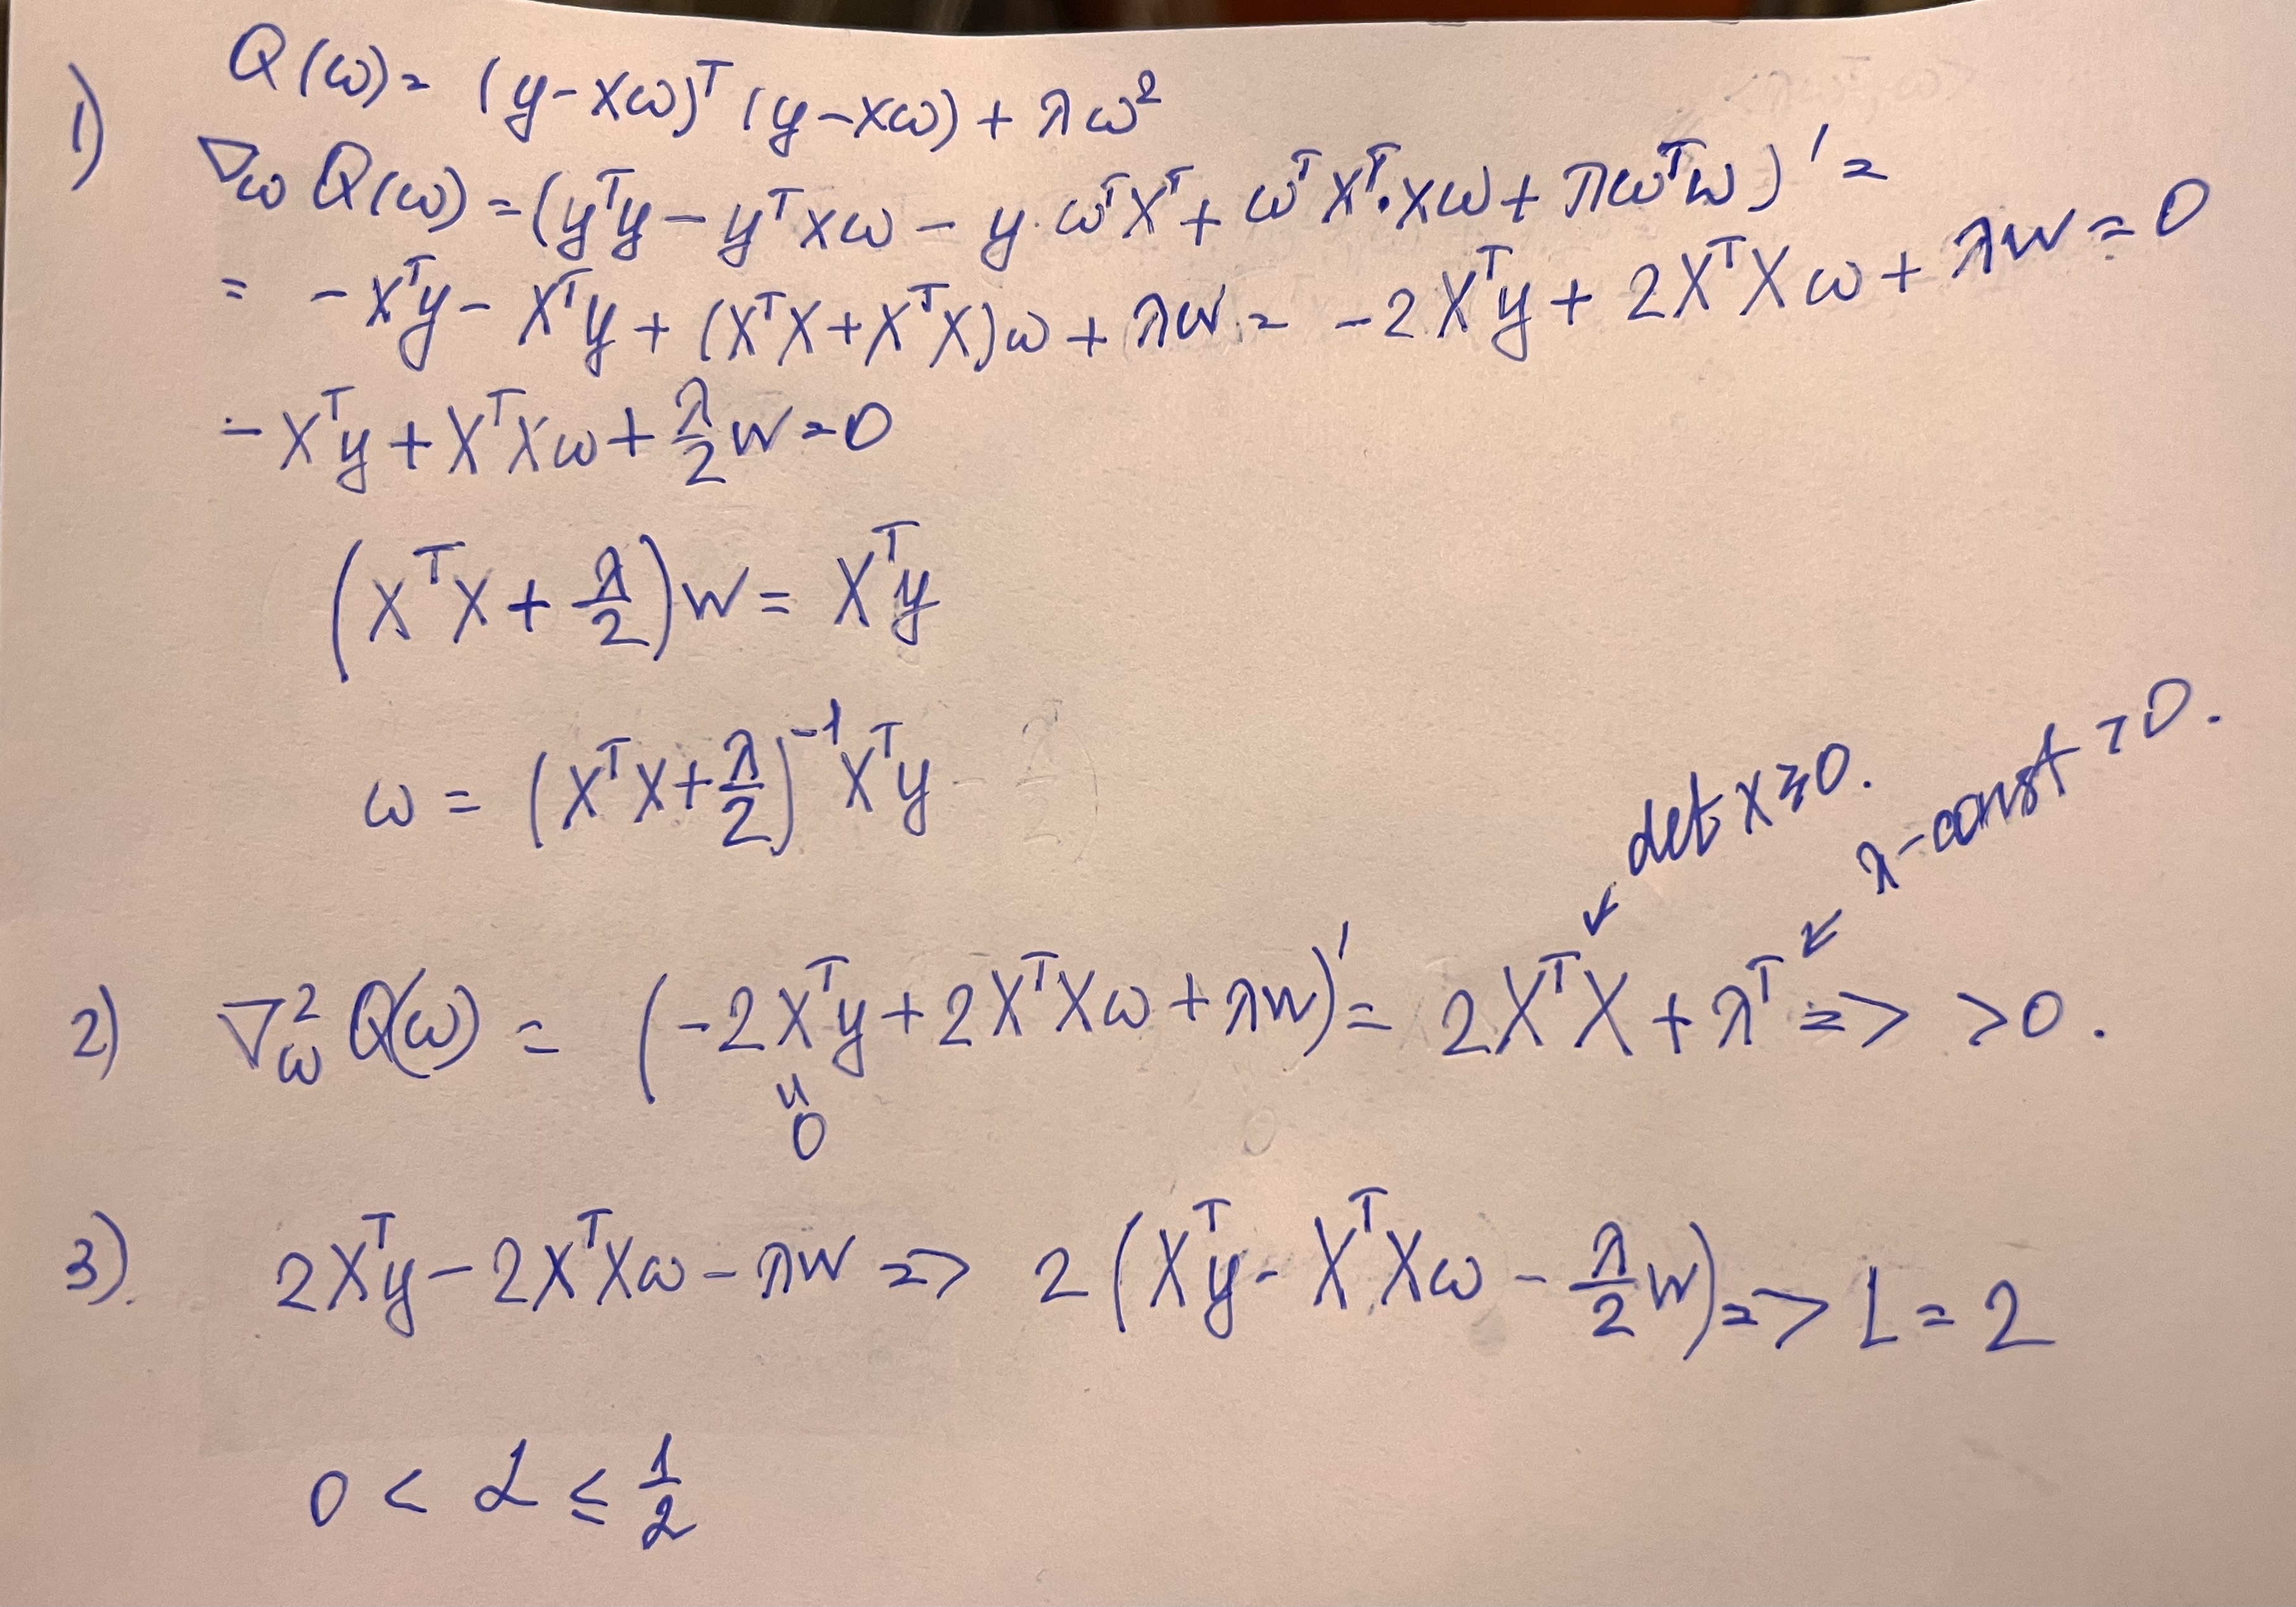 1) Q(ω) = (y-Xω)ᵀ(y-Xω) + λω²
∇ω Q(ω) = (yᵀy - yᵀXω - y·ωᵀXᵀ + ωᵀXᵀ·Xω + λωᵀω)' =
= -Xᵀy - Xᵀy + (XᵀX + XᵀX)ω + λW = -2Xᵀy + 2XᵀXω + λW = 0
-Xᵀy + XᵀXω + λ/2 W = 0
(XᵀX + λ/2)W = Xᵀy
ω = (XᵀX + λ/2)⁻¹Xᵀy
det X ≥ 0.
λ-const > 0.
2) ∇²ω Q(ω) = (-2Xᵀy + 2XᵀXω + λW)' = 2XᵀX + λᵀ => > 0.
"
0
3). 2Xᵀy - 2XᵀXω - λW => 2(Xᵀy - XᵀXω - λ/2 W) => L = 2
0 < α ≤ 1/2